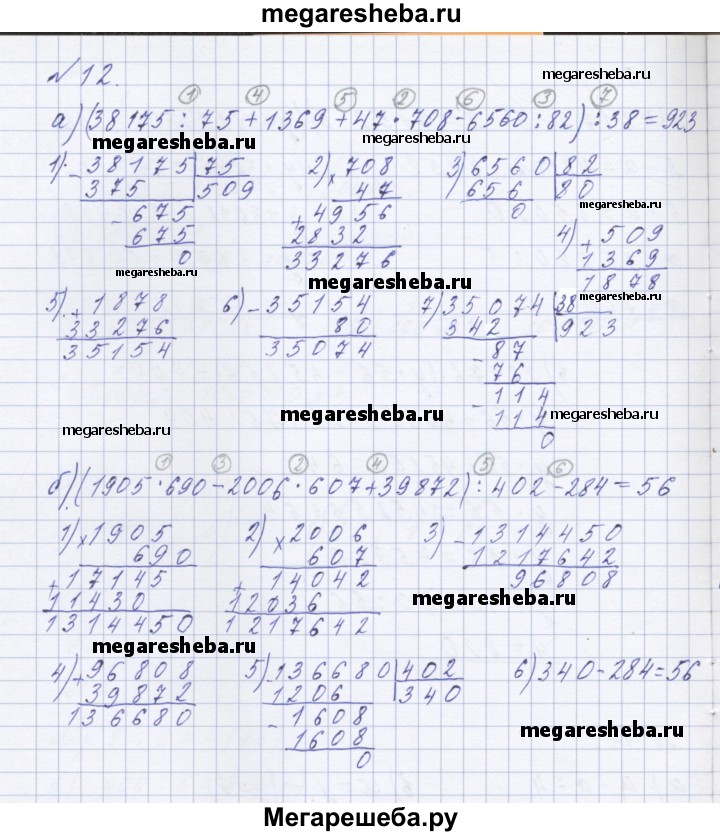 megaresheba.ru
№ 12.
megaresheba.ru
1 4 5 2 6 3 7
а) (38175 : 75 + 1369 + 47 · 708 - 6560 : 82) : 38 = 923
megaresheba.ru
megaresheba.ru
1) - 38175 | 75
375 | 509
- 675
675
0
2) × 708
47
+ 4956
2832
33276
3) 6560 | 82
656 | 80
0
megaresheba.ru
4) + 509
1369
1878
megaresheba.ru
megaresheba.ru
megaresheba.ru
5) + 1878
33276
35154
6) - 35154
80
35074
7) 35074 | 38
342 | 923
- 87
76
- 114
114
0
megaresheba.ru
megaresheba.ru
megaresheba.ru
1 3 2 4 5 6
б) (1905 · 690 - 2006 · 607 + 39872) : 402 - 284 = 56
1) × 1905
690
+ 17145
11430
1314450
2) × 2006
607
+ 14042
12036
1217642
3) - 1314450
1217642
96808
megaresheba.ru
megaresheba.ru
4) + 96808
39872
136680
5) - 136680 | 402
1206 | 340
- 1608
1608
0
6) 340 - 284 = 56
megaresheba.ru
megaresheba.ru
Мегарешеба.ру